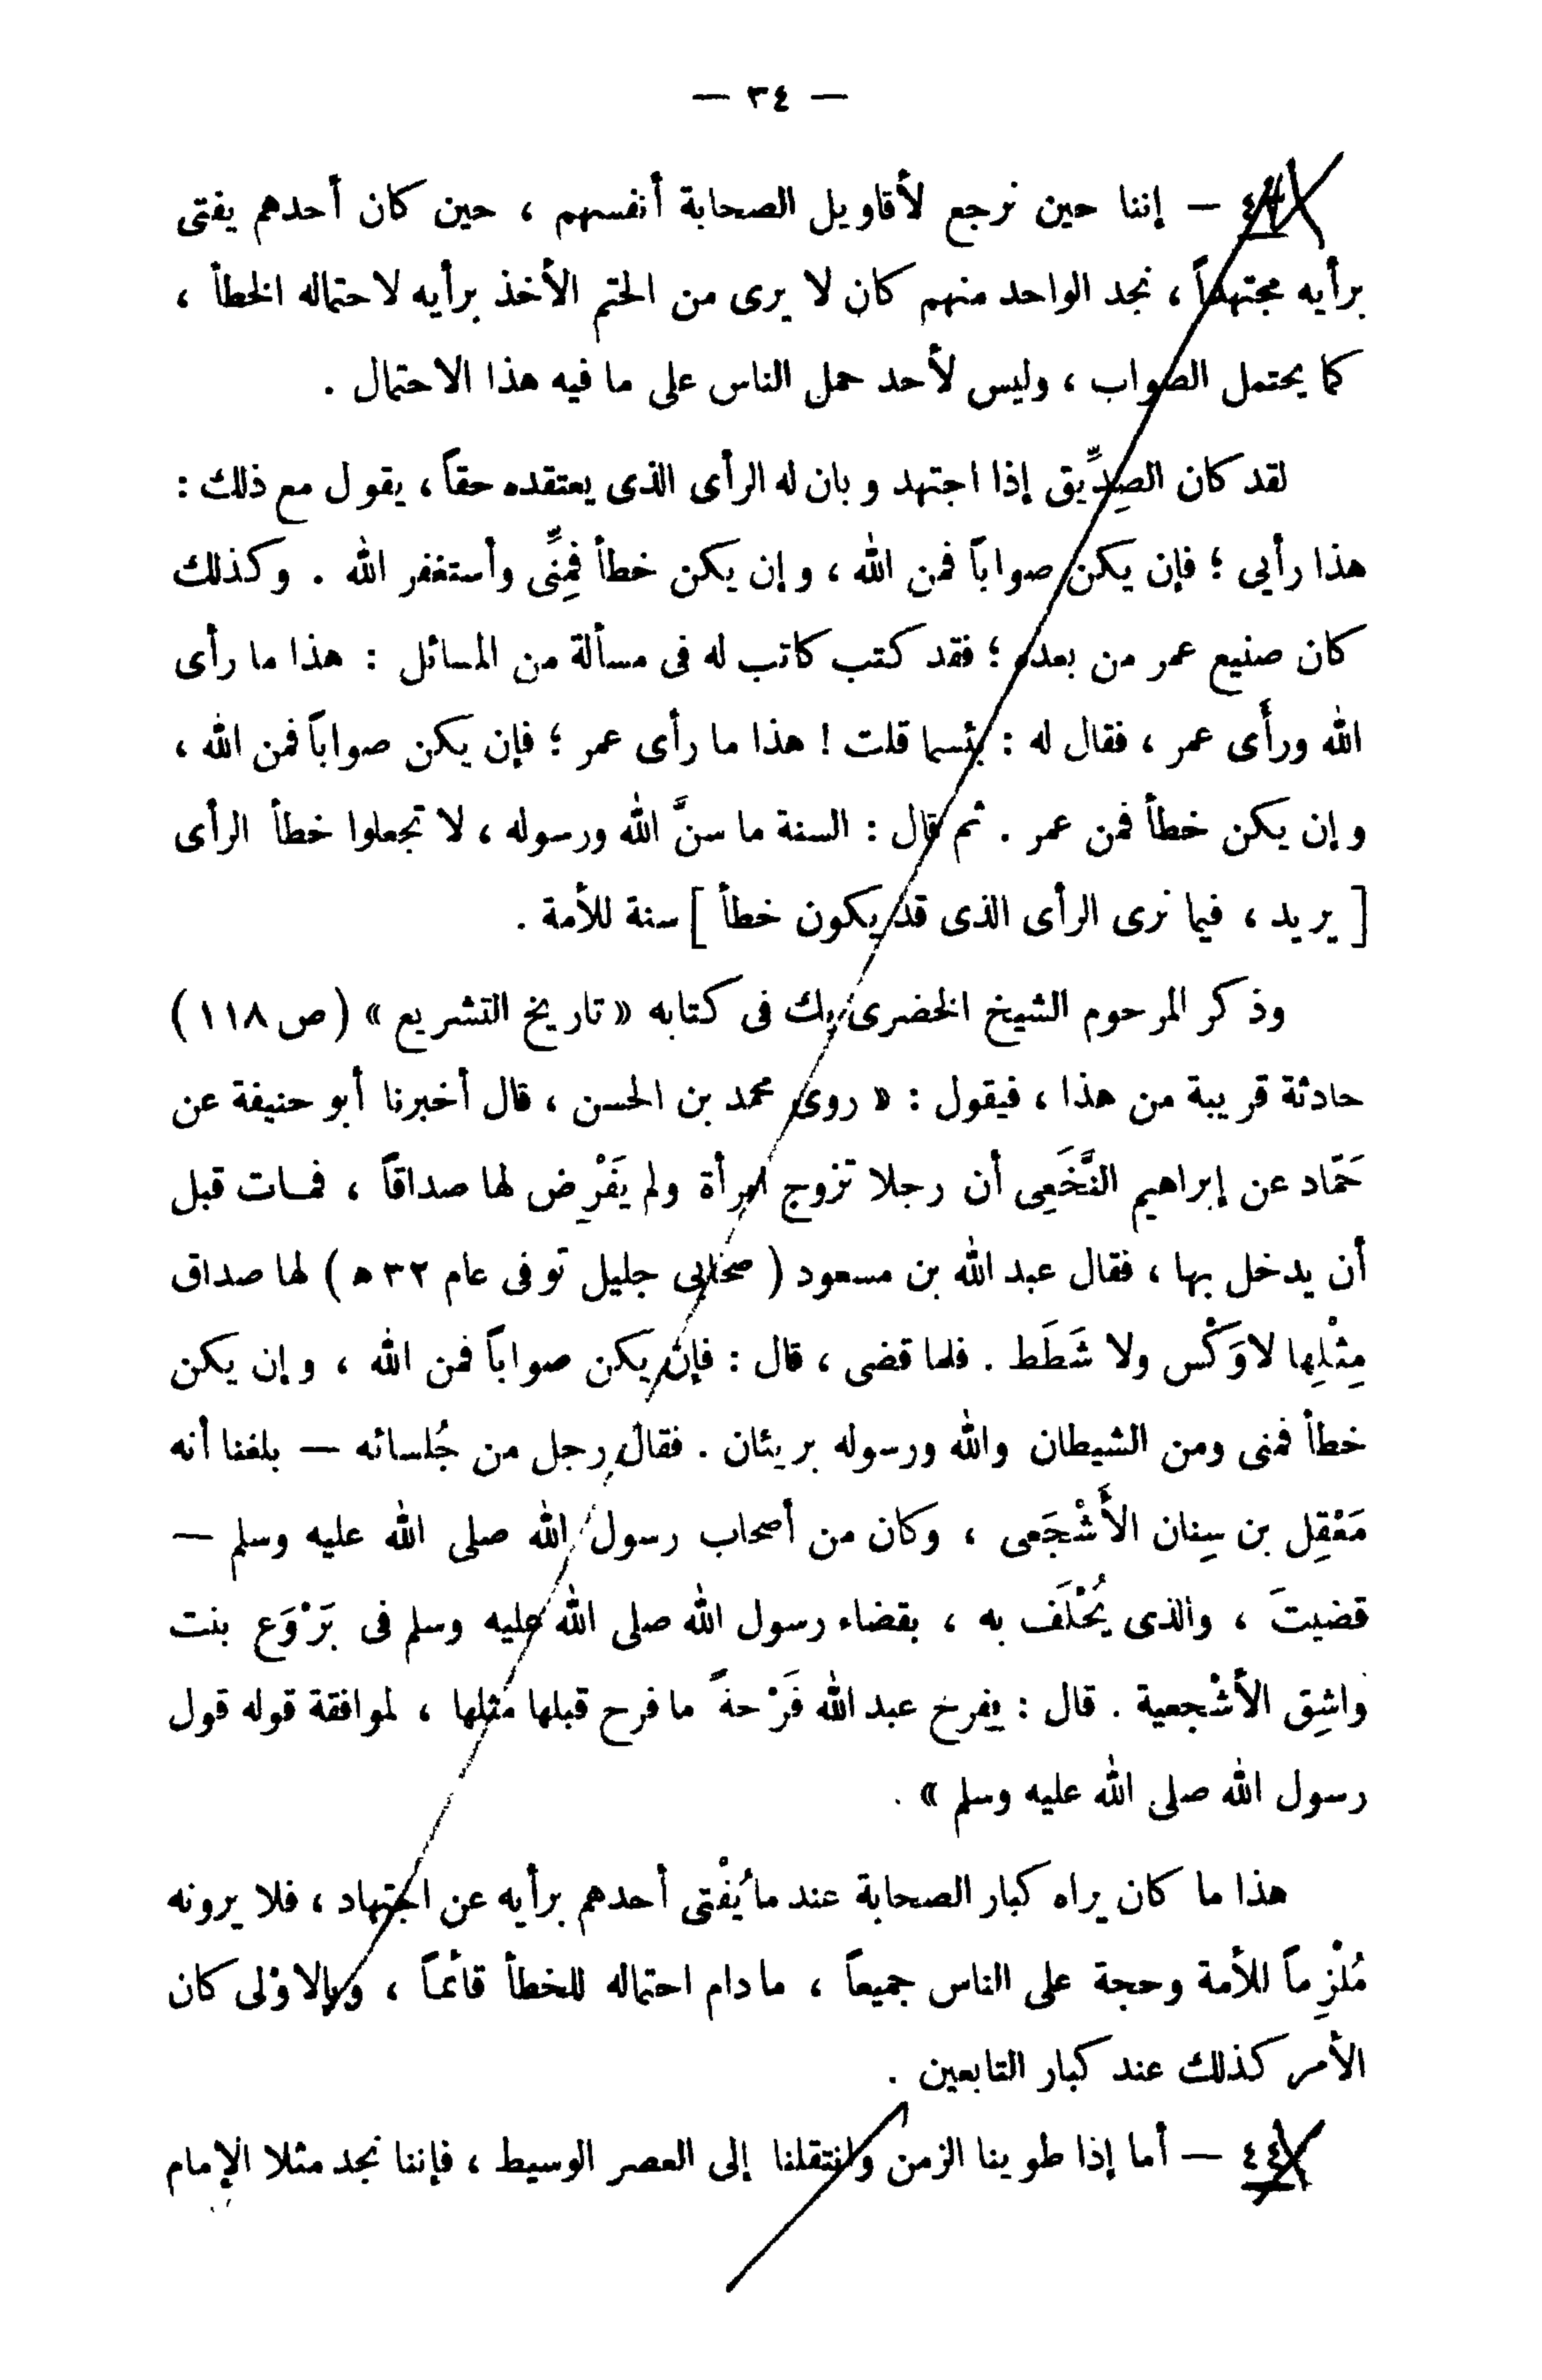 — ٣٤ —
— إننا حين نرجع لأقاويل الصحابة أنفسهم ، حين كان أحدهم يفتى
برأيه مجتهداً ، نجد الواحد منهم كان لا يرى من الحتم الأخذ برأيه لاحتماله الخطأ ،
كما يحتمل الصواب ، وليس لأحد حمل الناس على ما فيه هذا الاحتمال .
لقد كان الصِدِّيق إذا اجتهد وبان له الرأى الذى يعتقده حقاً ، يقول مع ذلك :
هذا رأيي ؛ فإن يكن صواباً فمن الله ، وإن يكن خطأ فمِنِّى وأستغفر الله . وكذلك
كان صنيع عمر من بعده ؛ فقد كتب كاتب له فى مسألة من المسائل : هذا ما رأى
الله ورأَى عمر ، فقال له : بئسما قلت ! هذا ما رأى عمر ؛ فإن يكن صواباً فمن الله ،
وإن يكن خطأ فمن عمر . ثم قال : السنة ما سنَّ الله ورسوله ، لا تجعلوا خطأ الرأى
[ يريد ، فيما نرى الرأى الذى قد يكون خطأ ] سنة للأمة .
وذكر المرحوم الشيخ الخضرى بك فى كتابه « تاريخ التشريع » (ص ١١٨)
حادثة قريبة من هذا ، فيقول : « روى محمد بن الحسن ، قال أخبرنا أبو حنيفة عن
حَمّاد عن إبراهيم النَّخَعِى أن رجلا تزوج امرأة ولم يَفْرِض لها صداقاً ، فمات قبل
أن يدخل بها ، فقال عبد الله بن مسعود ( صحابى جليل توفى عام ٣٢ ه ) لها صداق
مِثْلِها لا وَكْس ولا شَطَط . فلما قضى ، قال : فإن يكن صواباً فمن الله ، وإن يكن
خطأ فمنى ومن الشيطان والله ورسوله بريئان . فقال رجل من جُلسائه — بلغنا أنه
مَعْقِل بن سِنان الأَشْجَعى ، وكان من أصحاب رسول الله صلى الله عليه وسلم —
قضيتَ ، والذى يُحْلَف به ، بقضاء رسول الله صلى الله عليه وسلم فى بَرْوَع بنت
واشِق الأشْجعية . قال : ففرح عبد الله فَرْحةً ما فرح قبلها مثلها ، لموافقة قوله قول
رسول الله صلى الله عليه وسلم » .
هذا ما كان يراه كبار الصحابة عند ما يُفْتى أحدهم برأيه عن اجتهاد ، فلا يرونه
مُلْزِماً للأمة وحجة على الناس جميعاً ، ما دام احتماله للخطأ قائماً ، وبالاوْلى كان
الأمر كذلك عند كبار التابعين .
٤٤ — أما إذا طوينا الزمن وانتقلنا إلى العصر الوسيط ، فإننا نجد مثلا الإمام